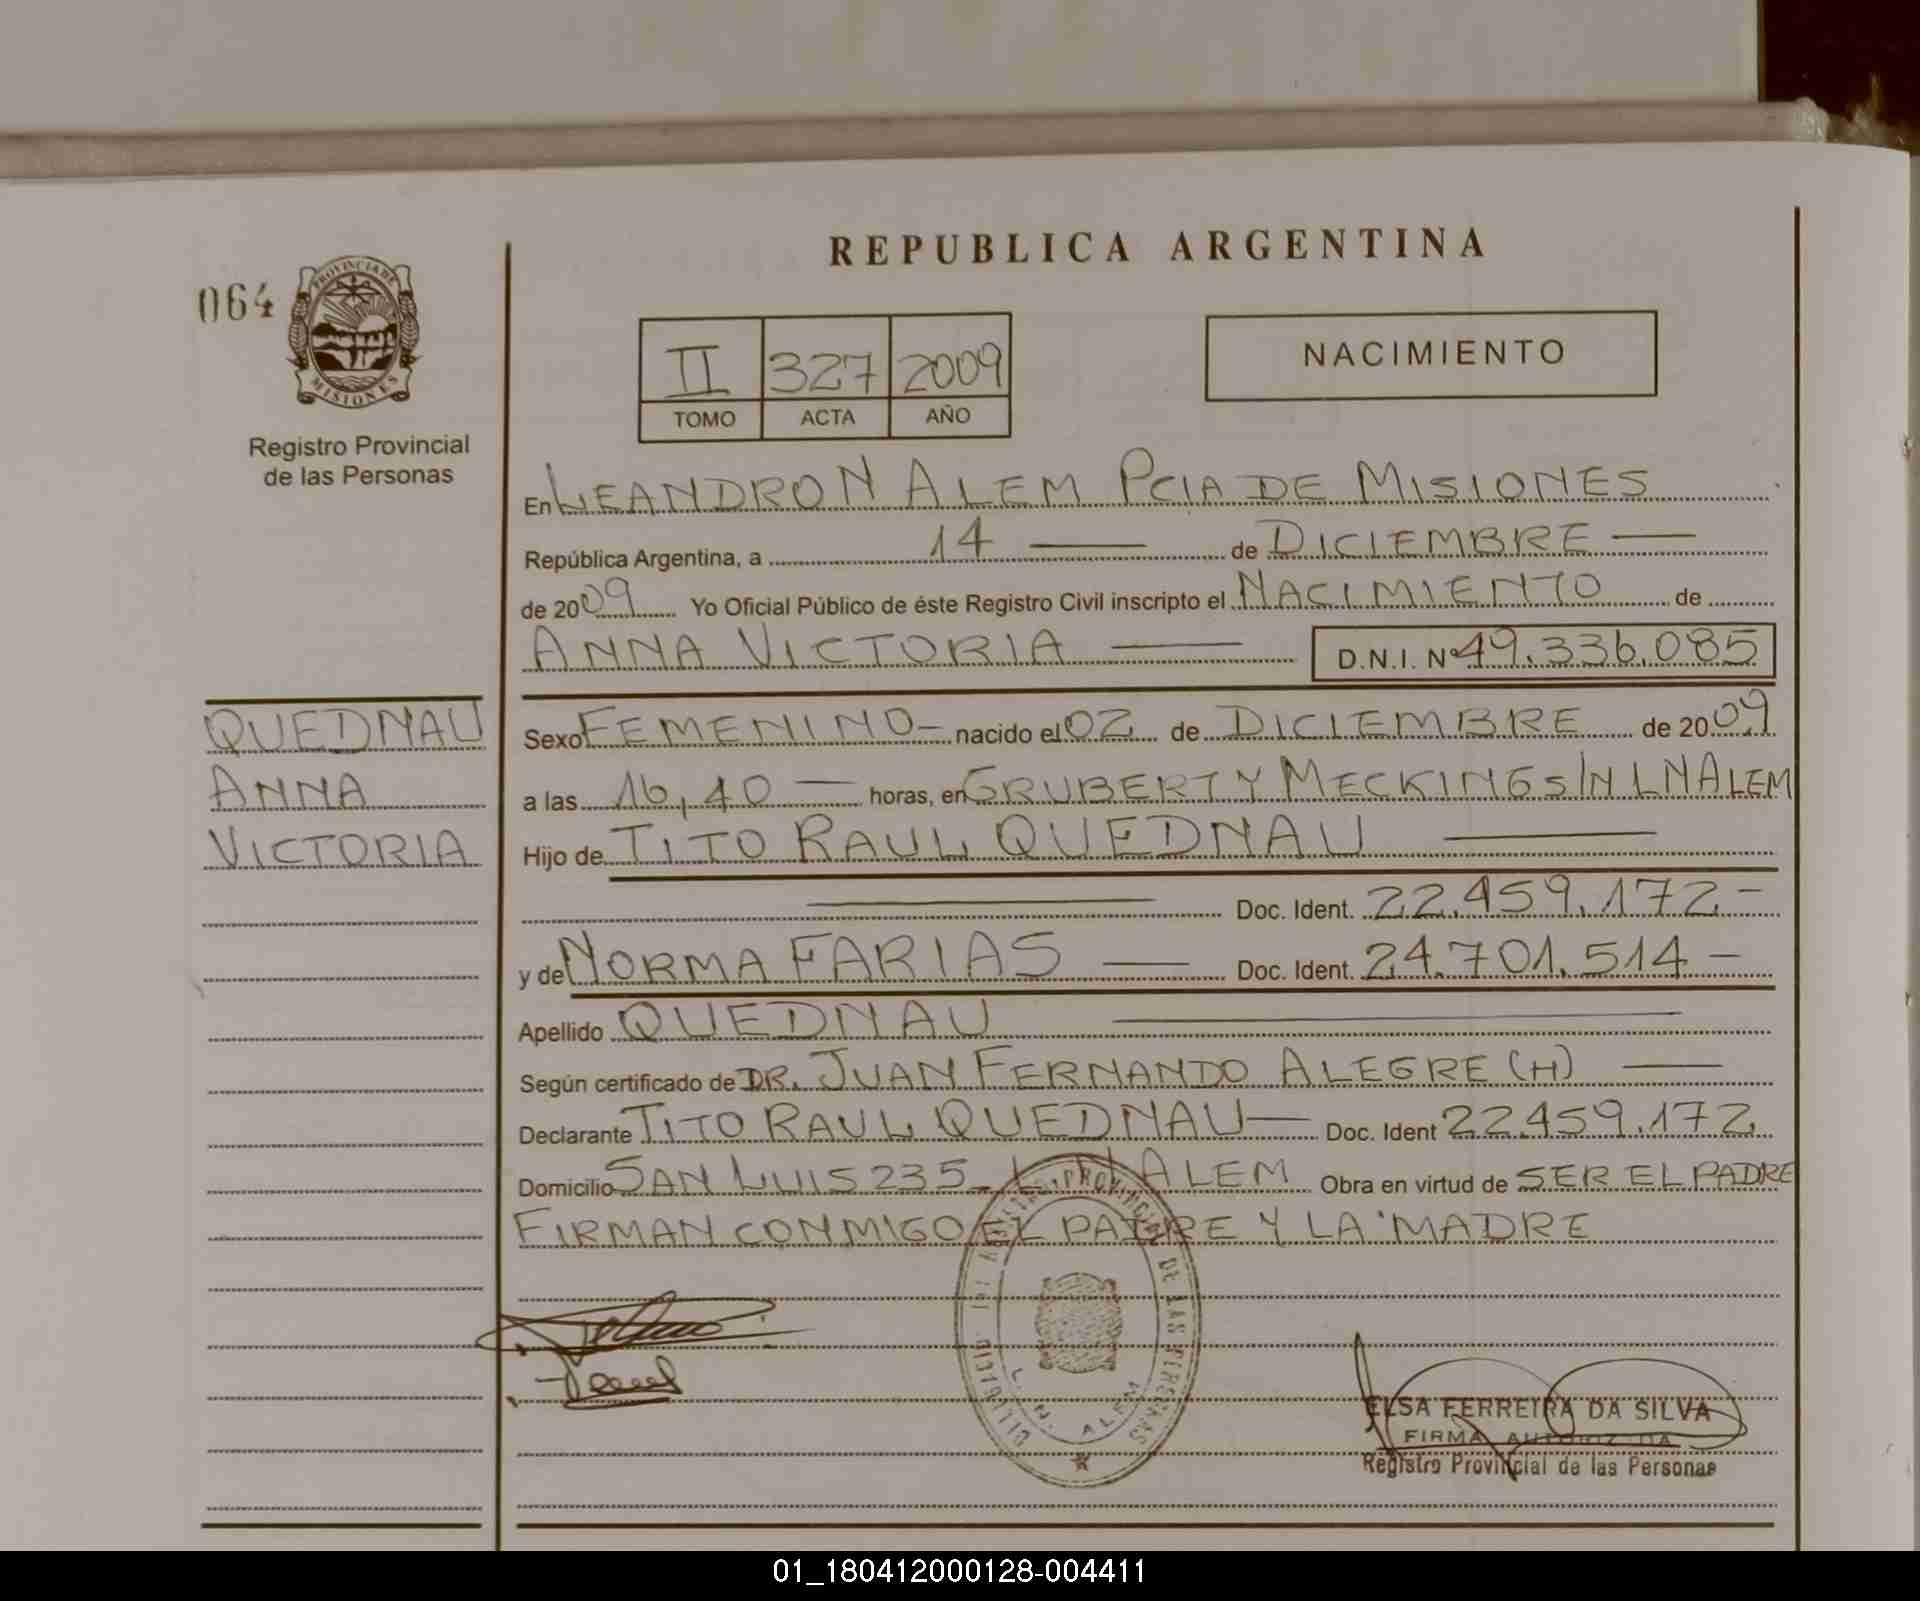 REPUBLICA ARGENTINA
064
PROVINCIA DE
MISIONES
Registro Provincial
de las Personas
II 327 2009
TOMO ACTA AÑO
NACIMIENTO
En LEANDRO N ALEM PCIA DE MISIONES
República Argentina, a 14 — de DICIEMBRE —
de 2009 Yo Oficial Público de éste Registro Civil inscripto el NACIMIENTO de
ANNA VICTORIA — D.N.I. Nº 49.336.085
QUEDNAU
ANNA
VICTORIA
Sexo FEMENINO — nacido el 02 de DICIEMBRE de 2009
a las 16,40 — horas, en GRUBERT Y MECKING S/N L N ALEM
Hijo de TITO RAUL QUEDNAU —
— Doc. Ident. 22.459.172 —
y de NORMA FARIAS — Doc. Ident. 24.701.514 —
Apellido QUEDNAU —
Según certificado de DR. JUAN FERNANDO ALEGRE (H) —
Declarante TITO RAUL QUEDNAU — Doc. Ident 22.459.172
Domicilio SAN LUIS 235 - L N ALEM Obra en virtud de SER EL PADRE
FIRMAN CONMIGO EL PADRE Y LA MADRE
PROVINCIAL DE LAS PERSONAS
L. N. ALEM
ELSA FERREIRA DA SILVA
FIRMA AUTORIZADA
Registro Provincial de las Personas
01_180412000128-004411